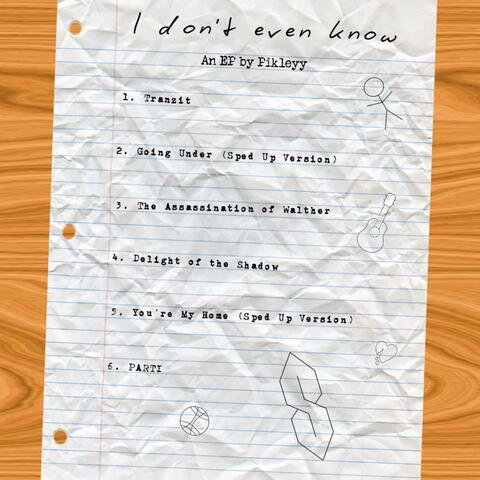 I don't even know
An EP by Pikleyy
1. Tranzit
2. Going Under (Sped Up Version)
3. The Assassination of Walther
4. Delight of the Shadow
5. You're My Home (Sped Up Version)
6. PARTI